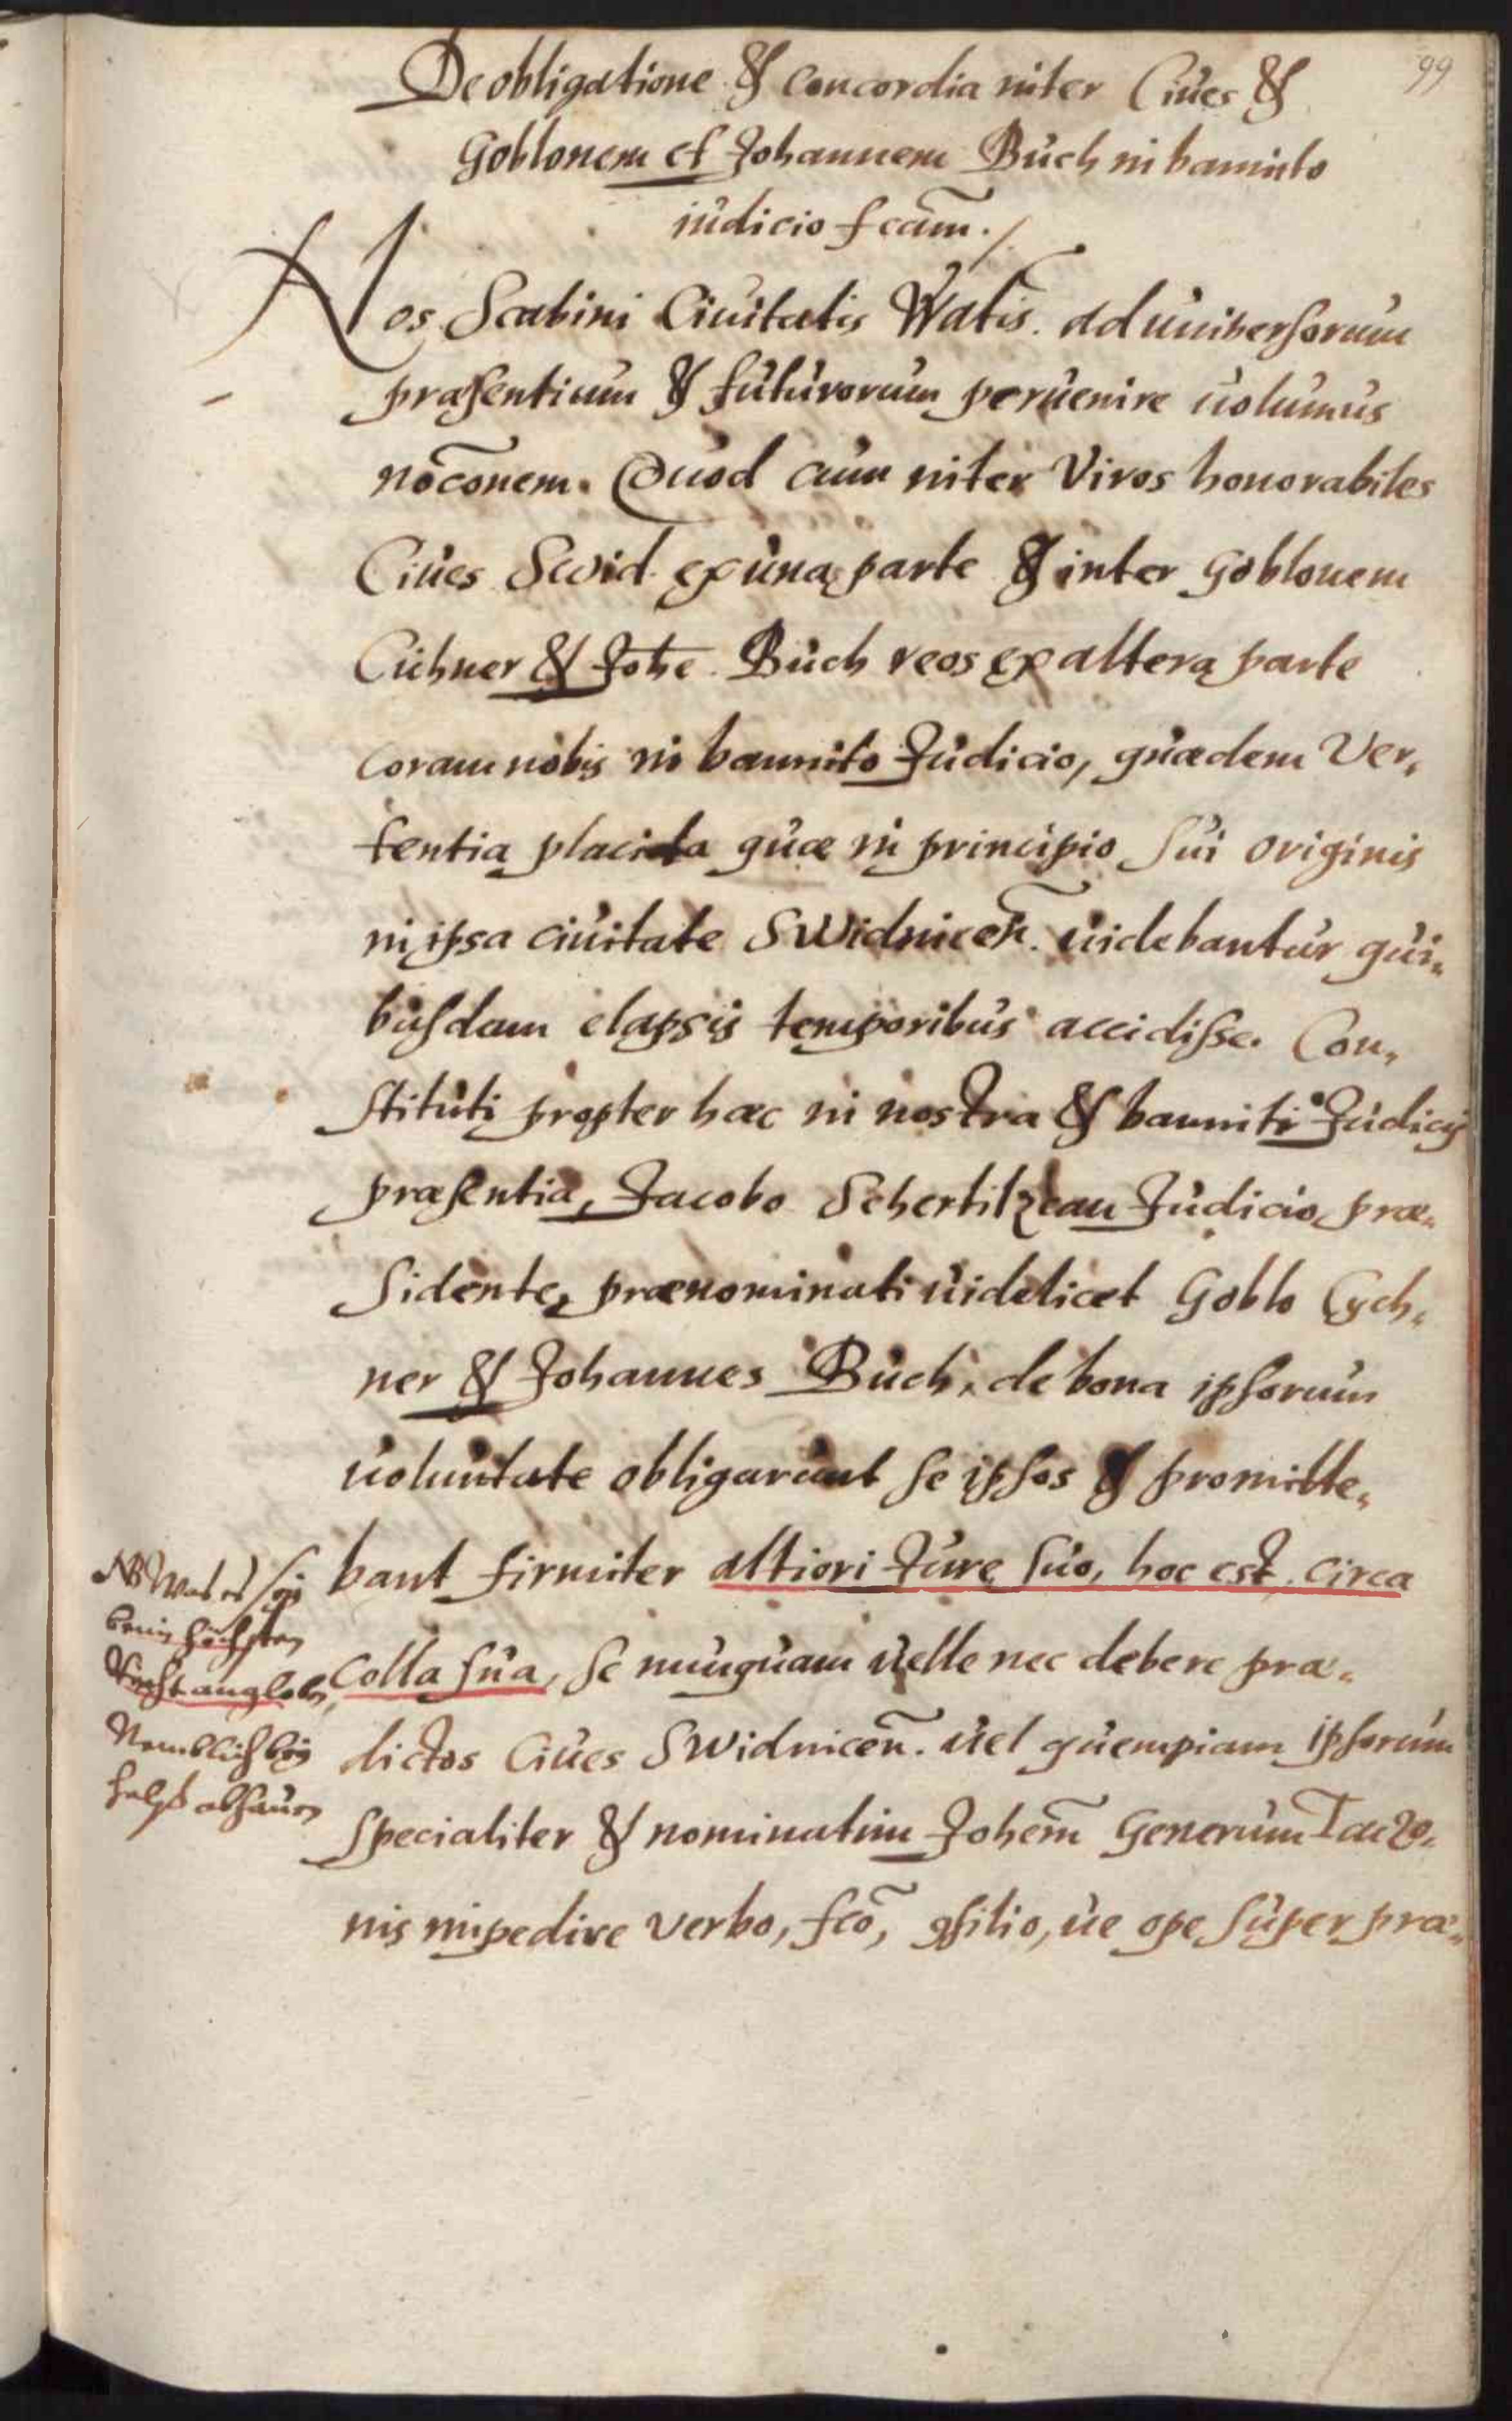 99
De obligatione & concordia inter Ciues &
Goblonem et Johannem Buch in bannito
iudicio fcam̃.
Nos Scabini Ciuitatis Wratis̃. ad uniuersorum
præsentium & futurorum peruenire uolumus
nõc̃onem. Quod cum inter Viros honorabiles
Ciues Swid. ex una parte & inter Goblonem
Cühner & Joh̃e. Buch reos ex altera parte
coram nobis in bannito Judicio, quædem ver„
tentia placida quæ in principio sui originis
in ipsa ciuitate Swidniceñ. uidebantur qui„
busdam elapsis temporibus accidisse. Con„
stituti propter hæc in nostra & banniti Judicij
præsentia, Jacobo Schertilzcan Judicio præ„
sidente, prænominati uidelicet Goblo Cych„
ner & Johannes Buch, de bona ipsorum
uoluntate obligarunt se ipsos & promitte„
bant firmiter altiori Jure suo, hoc est, circa
colla sua, se nunquam uelle nec debere præ„
dictos Ciues Swidniceñ. uel quempiam ipsorum
specialiter & nominatim Johem̃ Generum
nis impedire verbo, fcõ, ꝯsilio, ue ope super præ„
NB Was es sey
beim höchsten
Recht angloben,
Nemblich bey
halß abhauen